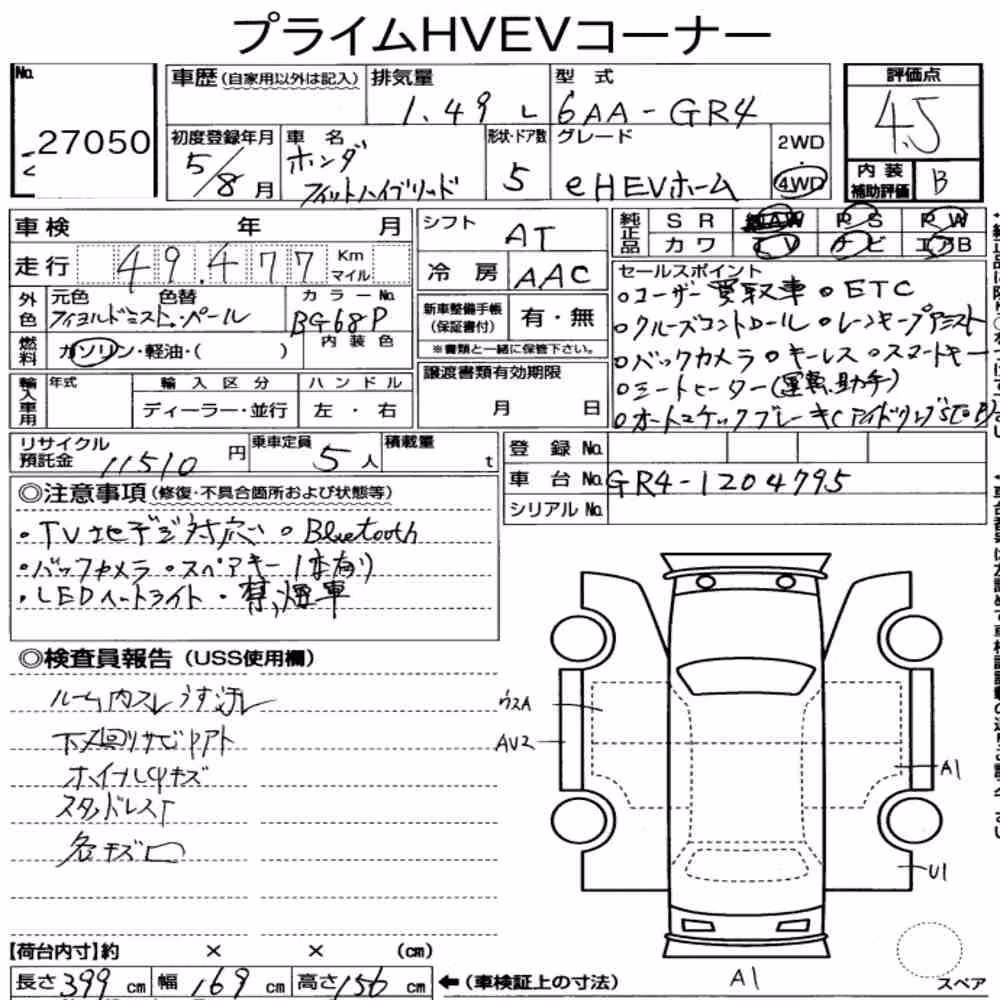 プライムHVEVコーナー
No. 27050
車歴(自家用以外は記入) 排気量 1.49 L 型式 6AA-GR4
評価点 4.5
初度登録年月 5/8月 車名 ホンダ フィットハイブリッド 形状・ドア数 5 グレード eHEVホーム 2WD・4WD
内装補助評価 B
車検 年 月
走行 49,477 Km マイル
シフト AT
冷房 AAC
純正品 SR AW PS PW
カワ TV ナビ エアB
外色 元色 色替 フィヨルドミスト・パール カラーNo. BG68P
燃料 ガソリン・軽油・( ) 内装色
新車整備手帳(保証書付) 有・無
※書類と一緒に保管下さい。
輸入車用 年式 輸入区分 ハンドル
ディーラー・並行 左・右
譲渡書類有効期限
月 日
セールスポイント
○ユーザー買取車 ○ETC
○クルーズコントロール ○レーンキープアシスト
○バックカメラ ○キーレス ○スマートキー
○シートヒーター(運転,助手)
リサイクル預託金 11510 円 乗車定員 5人 積載量 t
登録No.
車台No. GR4-1204795
シリアルNo.
◎注意事項(修復・不具合箇所および状態等)
・TV地デジ対応 ○Bluetooth
・バックカメラ ○スペアキー1本有り
・LEDヘッドライト・禁煙車
◎検査員報告(USS使用欄)
ルーム内スレうす汚レ
下廻リサビアト
ホイールCAPキズ
スタッドレスT
各キズ凹
ウスA
AU2
A1
U1
A1
スペア
【荷台内寸】約 × × (cm)
長さ 399 cm 幅 169 cm 高さ 156 cm ←(車検証上の寸法)